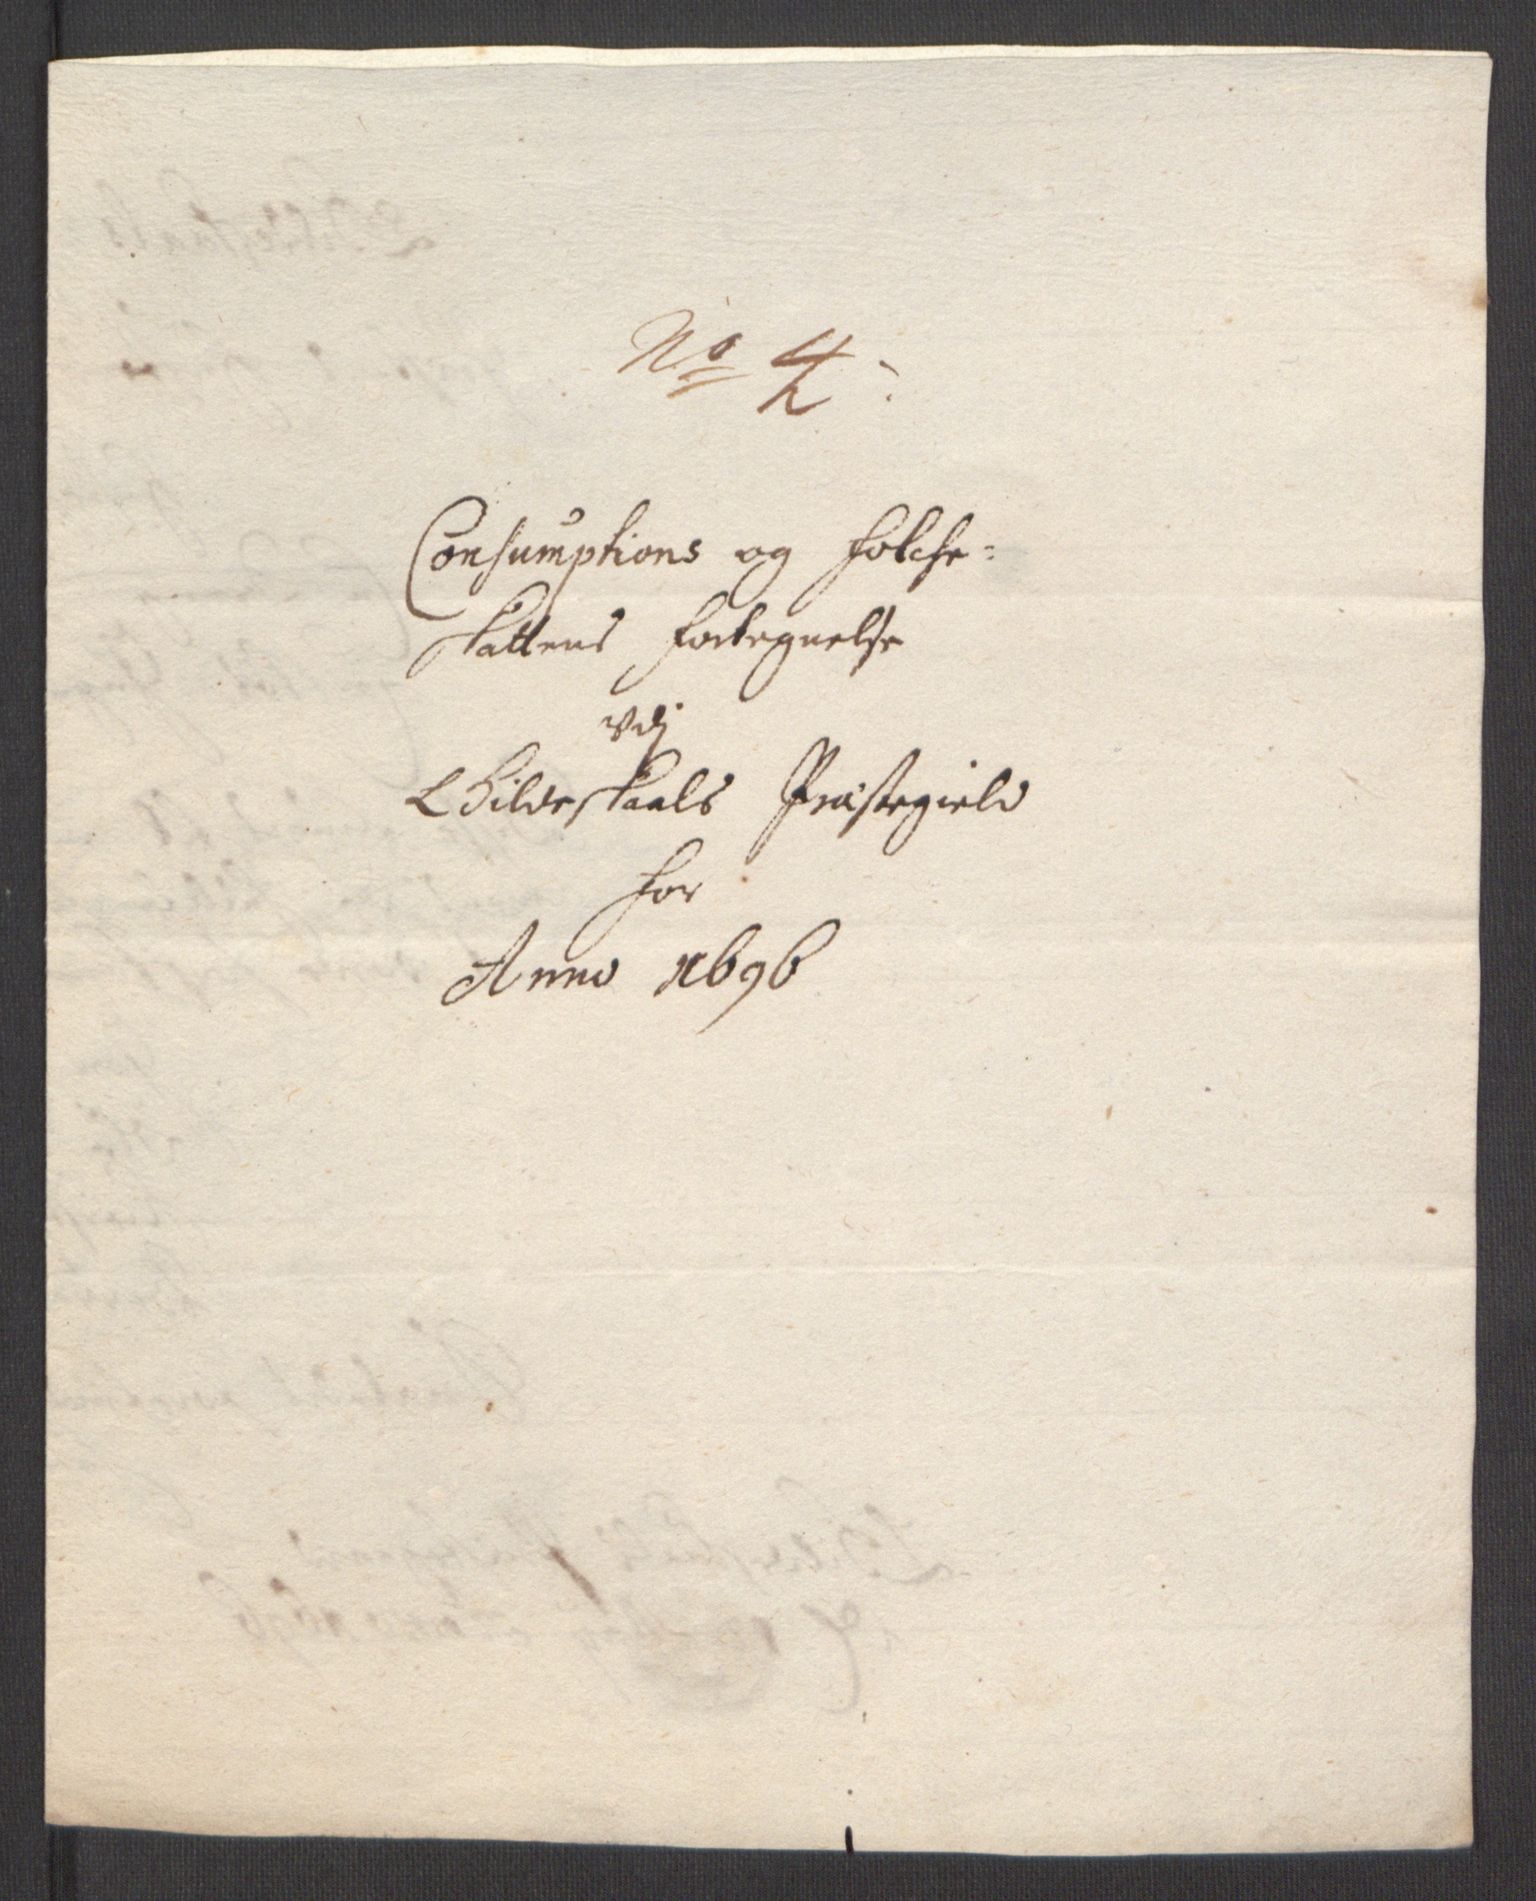 No 4:
Consumptions og Folche=
skattens Fortegnelse
Vdj
Gilde skaals Præstegield
for
Anno 1696